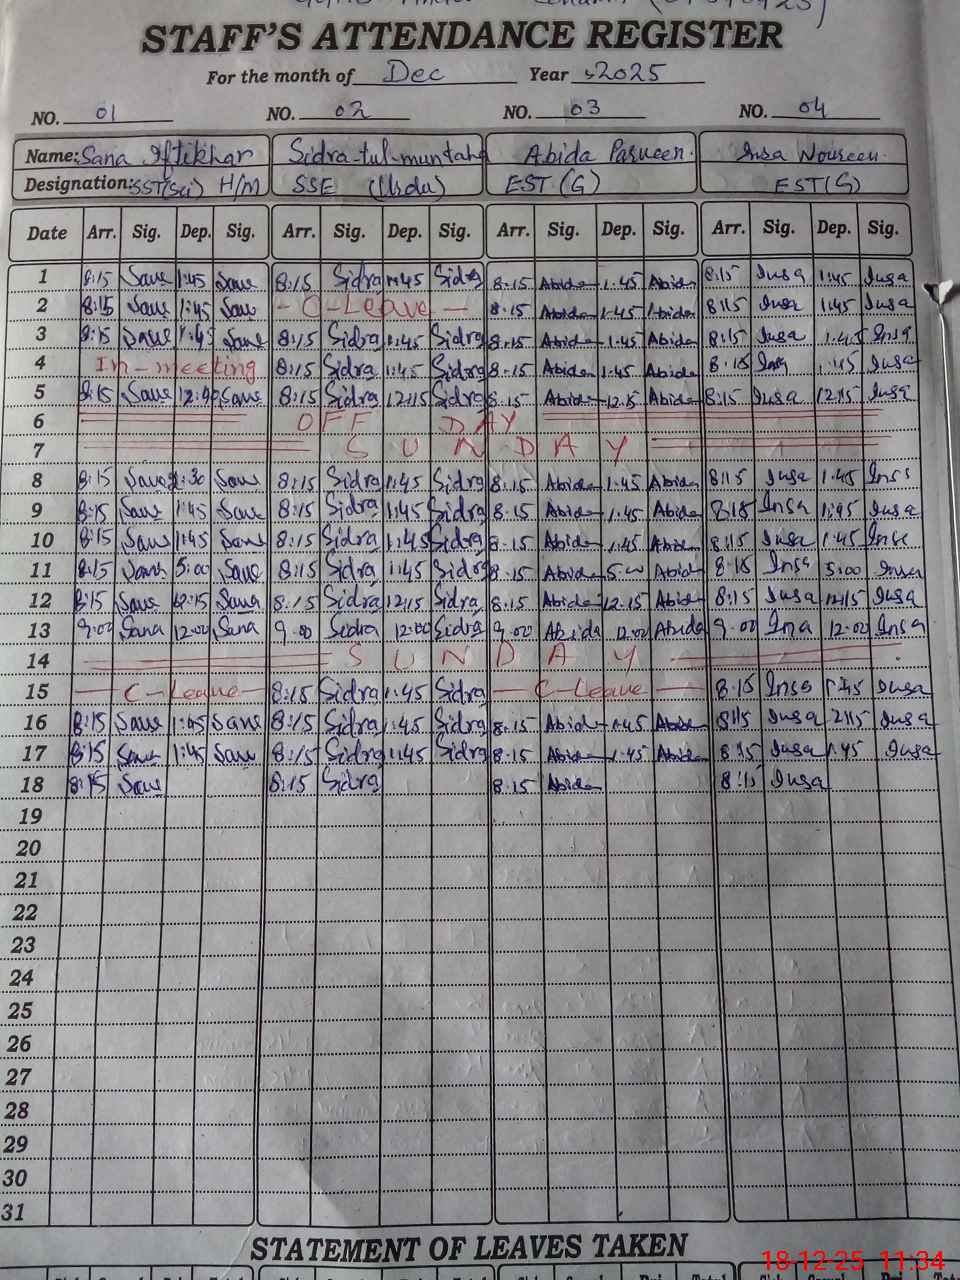 STAFF'S ATTENDANCE REGISTER
For the month of Dec Year 2025
NO. 01 NO. 02 NO. 03 NO. 04
Name: Sana Iftikhar Sidra-tul-muntaha Abida Parveen. Insa Noureen.
Designation: SST(sci) H/M SSE (Urdu) EST (G) EST(G)
Date Arr. Sig. Dep. Sig. Arr. Sig. Dep. Sig. Arr. Sig. Dep. Sig. Arr. Sig. Dep. Sig.
1 8:15 Sana 1:45 Sana 8:15 Sidra 1:45 Sidra 8.15 Abida 1.45 Abida 8:15 Insa 1:45 Insa
2 8:15 Sana 1:45 Sana - C-Leave - 8.15 Abida 1.45 Abida 8:15 Insa 1:45 Insa
3 8:15 Sana 1:45 Sana 8:15 Sidra 1:45 Sidra 8.15 Abida 1.45 Abida 8:15 Insa 1.45 Insa
4 In-meeting 8:15 Sidra 1:45 Sidra 8.15 Abida 1.45 Abida 8:15 Insa 1:45 Insa
5 8:15 Sana Sana 8:15 Sidra 12:15 Sidra 8.15 Abida 12.15 Abida 8:15 Insa 12:15 Insa
6 OFF DAY
7 SUNDAY
8 8:15 Sana Sana 8:15 Sidra 1:45 Sidra 8.15 Abida 1.45 Abida 8:15 Insa 1.45 Insa
9 8:15 Sana 1:45 Sana 8:15 Sidra 1:45 Sidra 8.15 Abida 1.45 Abida 8:15 Insa 1:45 Insa
10 8:15 Sana 1:45 Sana 8:15 Sidra 1:45 Sidra 8.15 Abida 1.45 Abida 8:15 Insa 1:45 Insa
11 8:15 Sana 5:00 Sana 8:15 Sidra 1:45 Sidra 8.15 Abida 5.00 Abida 8:15 Insa 5:00 Insa
12 8:15 Sana 12:15 Sana 8:15 Sidra 12:15 Sidra 8.15 Abida 12.15 Abida 8:15 Insa 12:15 Insa
13 9:00 Sana 12:00 Sana 9.00 Sidra 12:00 Sidra 9.00 Abida 12.00 Abida 9.00 Ina 12:00 Insa
14 SUNDAY
15 - C-Leave - 8:15 Sidra 1:45 Sidra - C-Leave - 8:15 Insa 1:45 Insa
16 8:15 Sana 1:45 Sana 8:15 Sidra 1:45 Sidra 8.15 Abida 1.45 Abida 8:15 Insa 2:15 Insa
17 8:15 Sana 1:45 Sana 8:15 Sidra 1:45 Sidra 8.15 Abida 1.45 Abida 8:15 Insa 1.45 Insa
18 8:15 Sana 8:15 Sidra 8.15 Abida 8:15 Insa
19
20
21
22
23
24
25
26
27
28
29
30
31
STATEMENT OF LEAVES TAKEN
18-12-25 11:34